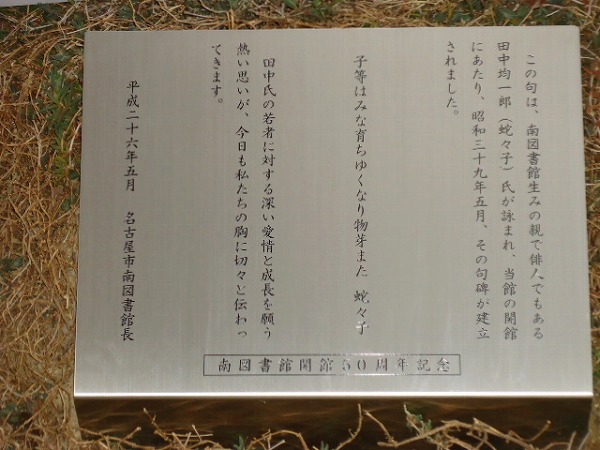 この句は、南図書館生みの親で俳人でもある
田中均一郎（蛇々子）氏が詠まれ、当館の開館
にあたり、昭和三十九年五月、その句碑が建立
されました。
子等はみな育ちゆくなり物芽また　蛇々子
田中氏の若者に対する深い愛情と成長を願う
熱い思いが、今日も私たちの胸に切々と伝わっ
てきます。
平成二十六年五月　名古屋市南図書館長
南図書館開館50周年記念